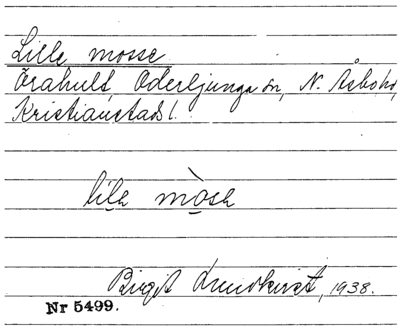 Lille mosse
Örahult, Oderljunga sn, N. Åsbo hd,
Kristianstads l.
lilɛ mòsɛ
Birgit Lundkvist, 1938.
Nr 5499.